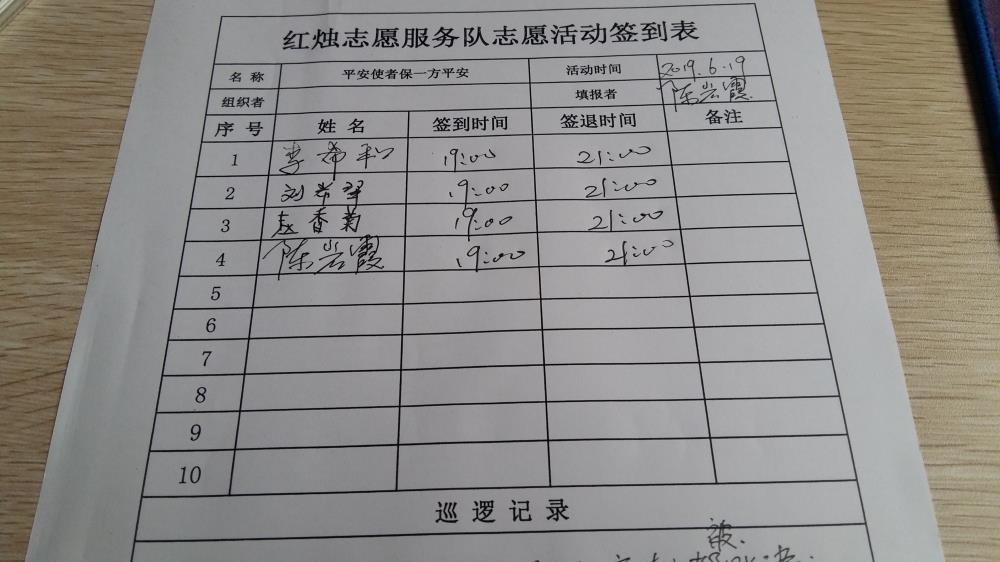 红烛志愿服务队志愿活动签到表
名 称 平安使者保一方平安 活动时间 2019.6.19
组织者 填报者 陈岩霞
序 号 姓 名 签到时间 签退时间 备注
1 李希和 19:00 21:00
2 刘希翠 19:00 21:00
3 赵香菊 19:00 21:00
4 陈岩霞 19:00 21:00
5
6
7
8
9
10
巡 逻 记 录